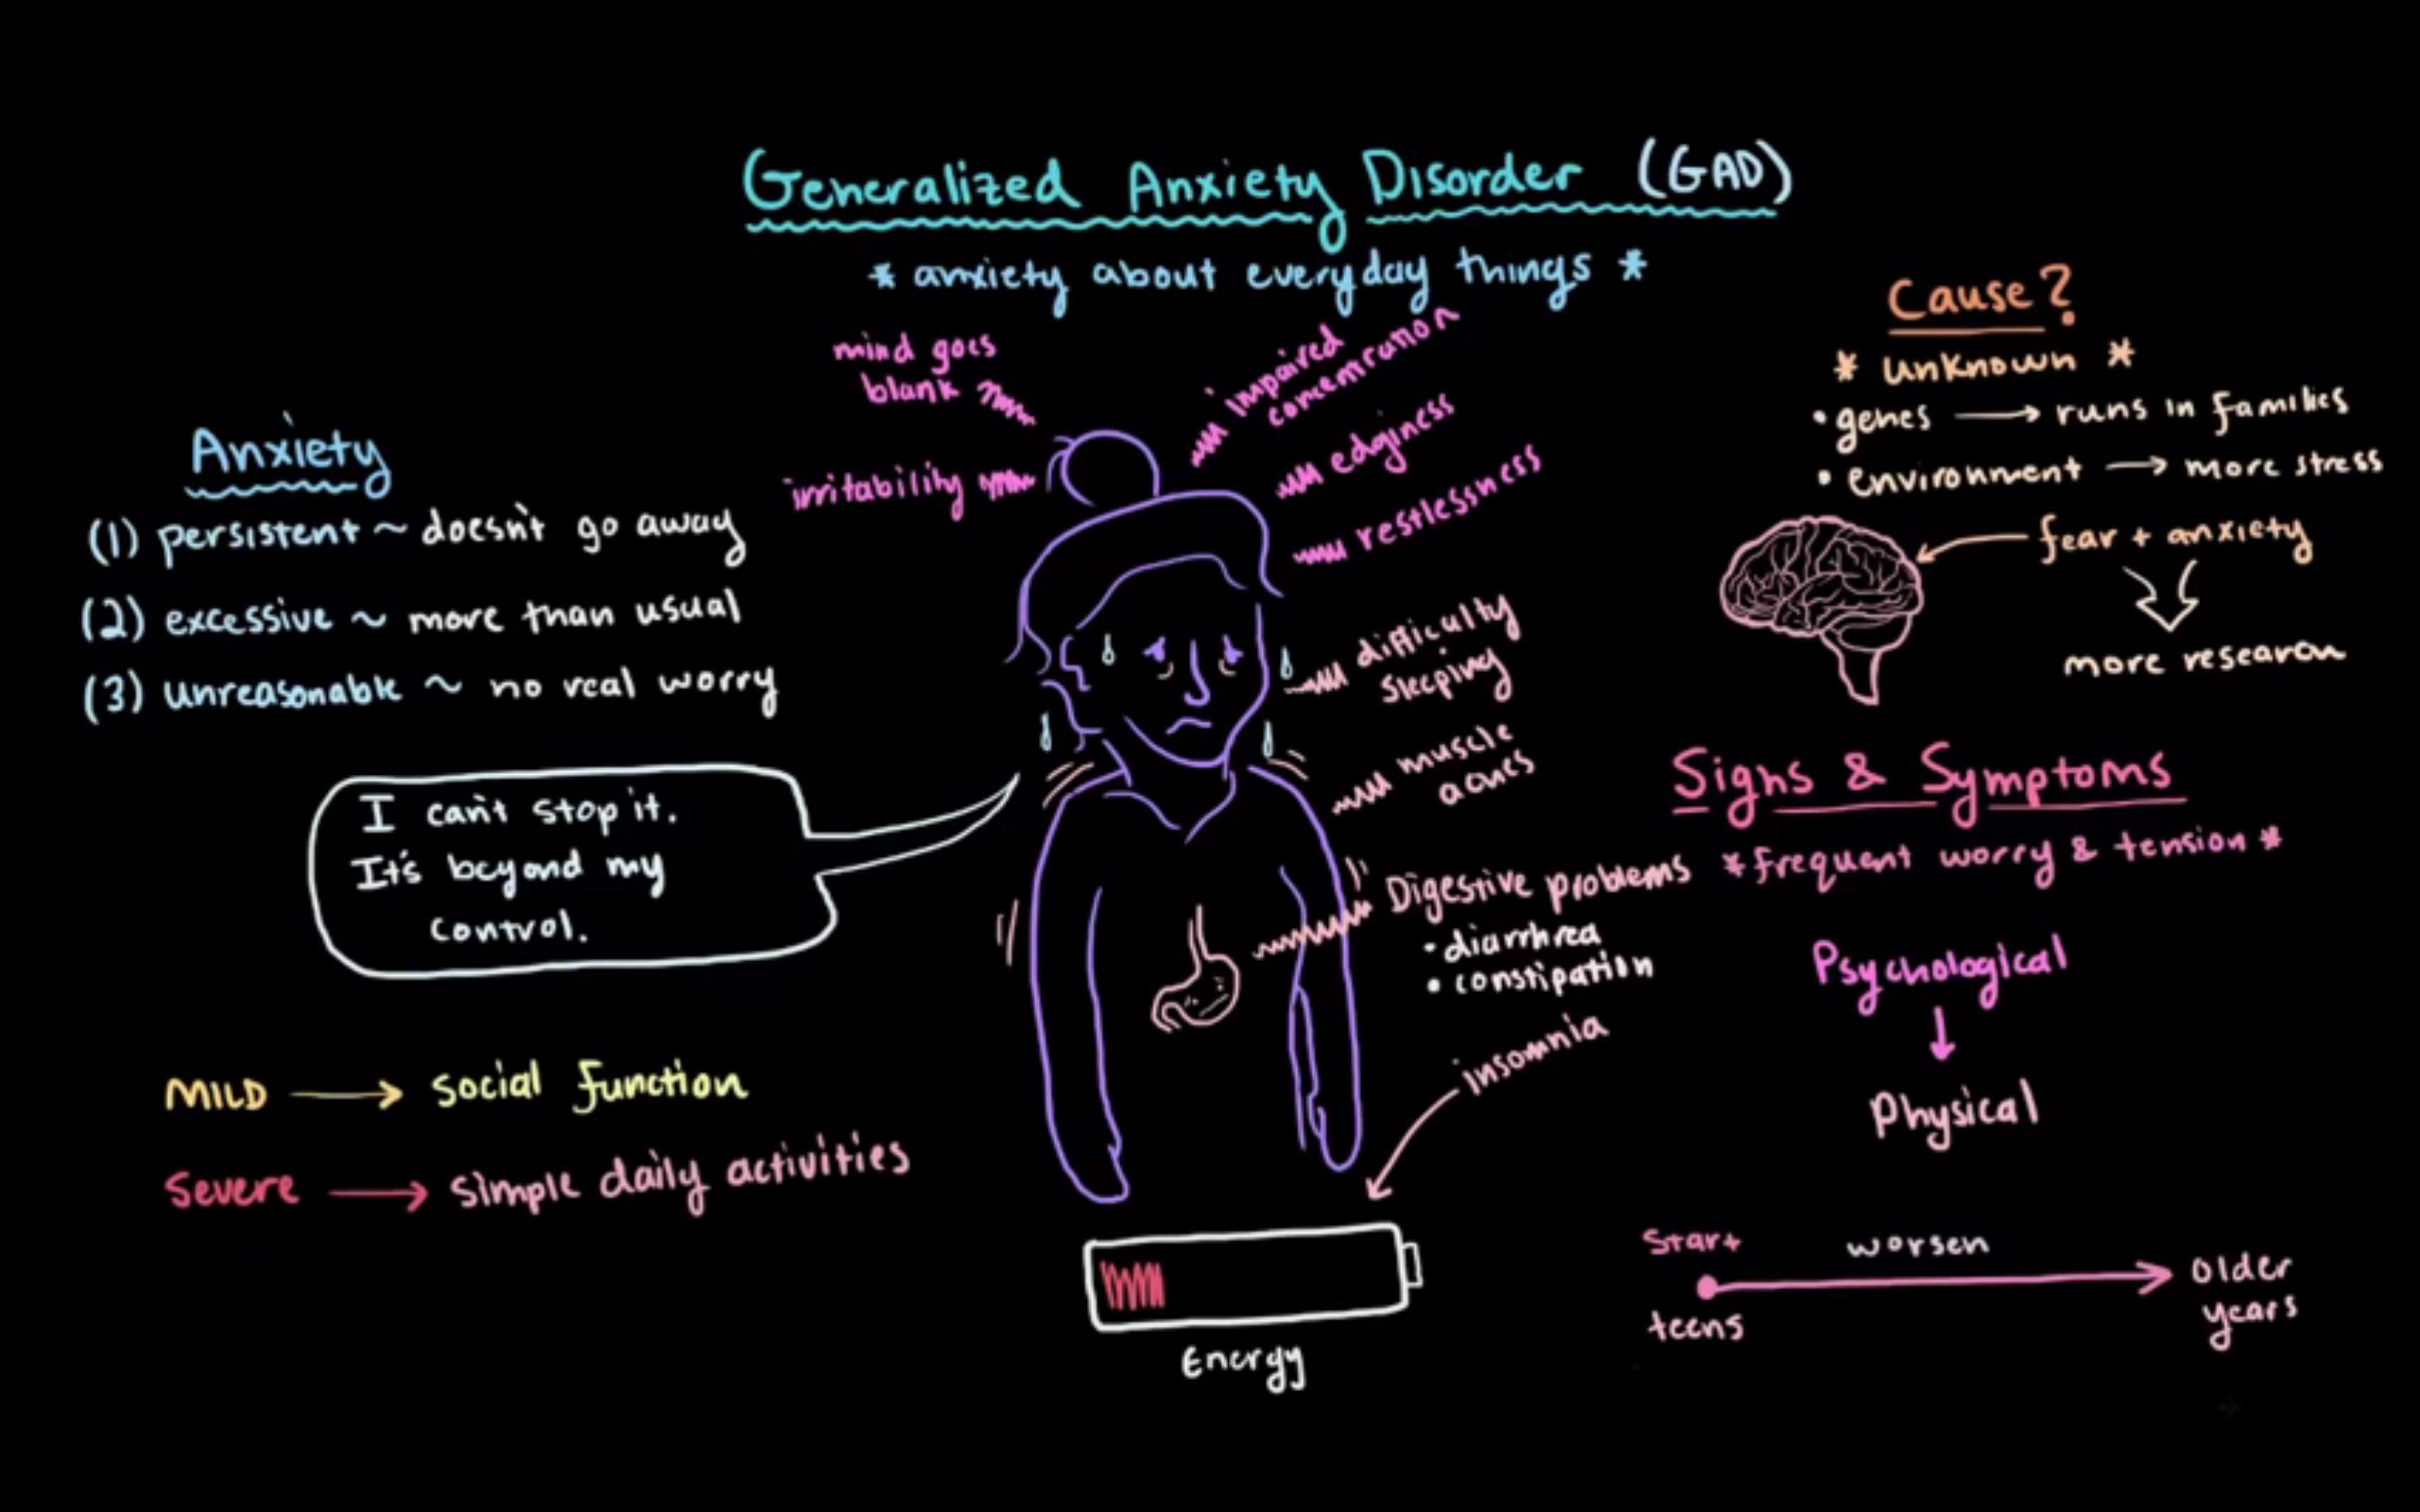 Generalized Anxiety Disorder (GAD)
* anxiety about everyday things *
Anxiety
(1) persistent ~ doesn't go away
(2) excessive ~ more than usual
(3) unreasonable ~ no real worry
I can't stop it.
It's beyond my
control.
MILD → social function
Severe → simple daily activities
mind goes
blank
irritability
impaired
concentration
edginess
restlessness
difficulty
sleeping
muscle
aches
Digestive problems
• diarrhea
• constipation
insomnia
Energy
Cause?
* unknown *
• genes → runs in families
• environment → more stress
fear + anxiety
more research
Signs & Symptoms
* frequent worry & tension *
Psychological
↓
Physical
start
worsen
teens
older
years